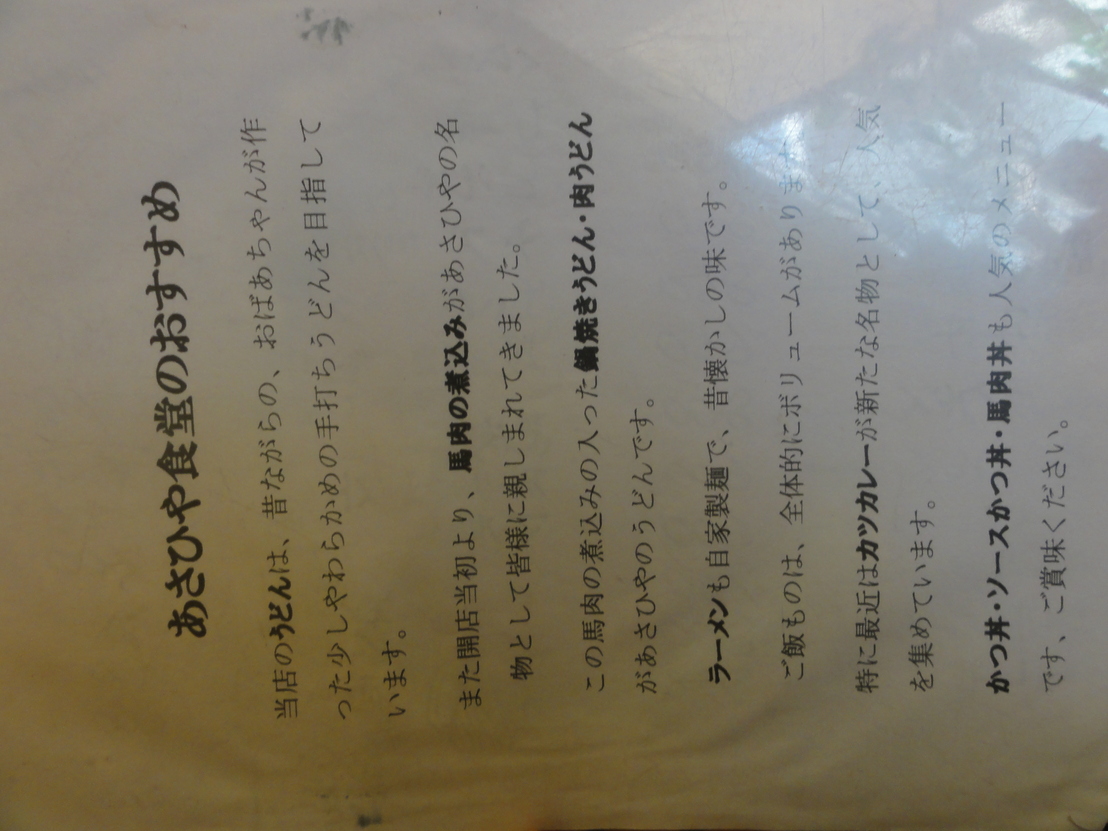 あさひや食堂のおすすめ
当店のうどんは、昔ながらの、おばあちゃんが作
った少しやわらかめの手打ちうどんを目指して
います。
また開店当初より、馬肉の煮込みがあさひやの名
物として皆様に親しまれてきました。
この馬肉の煮込みの入った鍋焼きうどん・肉うどん
があさひやのうどんです。
ラーメンも自家製麺で、昔懐かしの味です。
ご飯ものは、全体的にボリュームがあります。
特に最近はカツカレーが新たな名物として、人気
を集めています。
かつ丼・ソースかつ丼・馬肉丼も人気のメニュー
です、ご賞味ください。